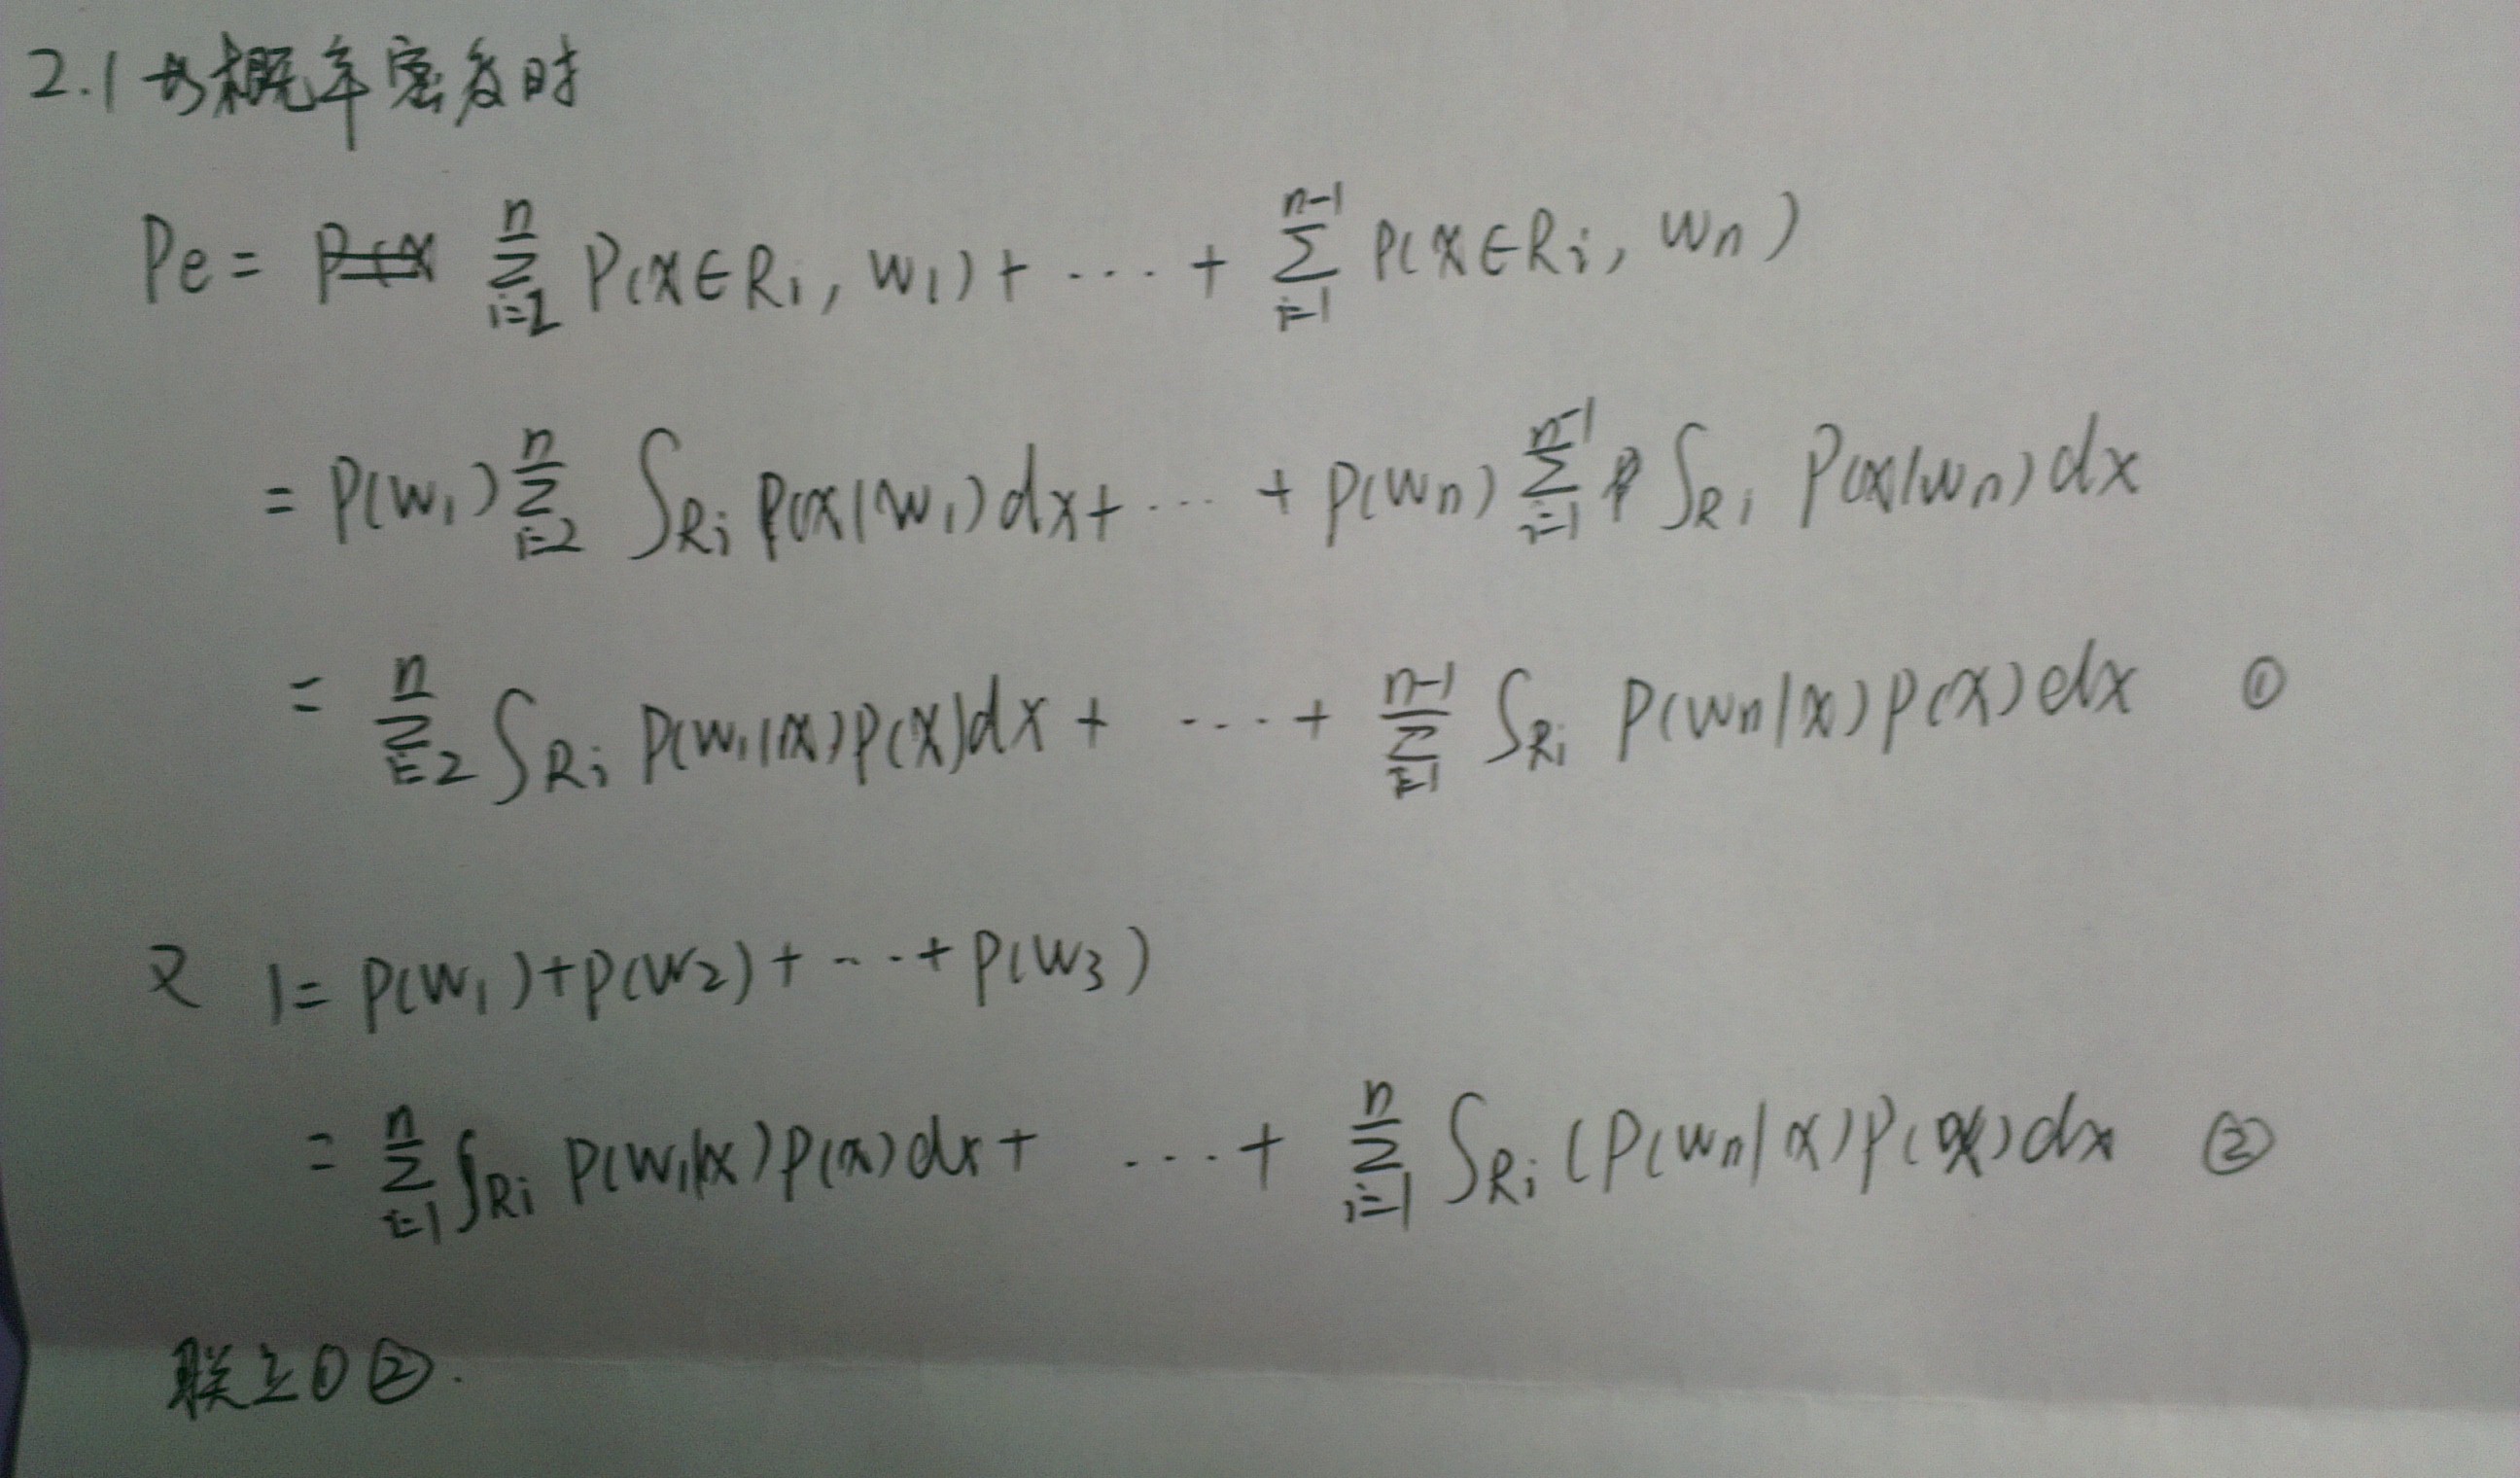 2.1 为概率密度时
Pe = \sum_{i=2}^{n} P(x∈Ri, w1) + ... + \sum_{i=1}^{n-1} P(x∈Ri, wn)
= P(w1) \sum_{i=2}^{n} ∫Ri P(x|w1)dx + ... + P(wn) \sum_{i=1}^{n-1} ∫Ri P(x|wn)dx
= \sum_{i=2}^{n} ∫Ri P(w1|x)P(x)dx + ... + \sum_{i=1}^{n-1} ∫Ri P(wn|x)P(x)dx ①
又 1 = P(w1)+P(w2)+...+P(w3)
= \sum_{i=1}^{n} ∫Ri P(w1|x)P(x)dx + ... + \sum_{i=1}^{n} ∫Ri (P(wn|x)P(x)dx ②
联立①②.